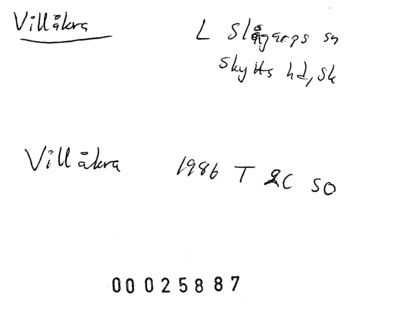 Villåkra L Slågarps sn
Skytts hd, Sk
Villåkra 1986 T 2C SO
00025887